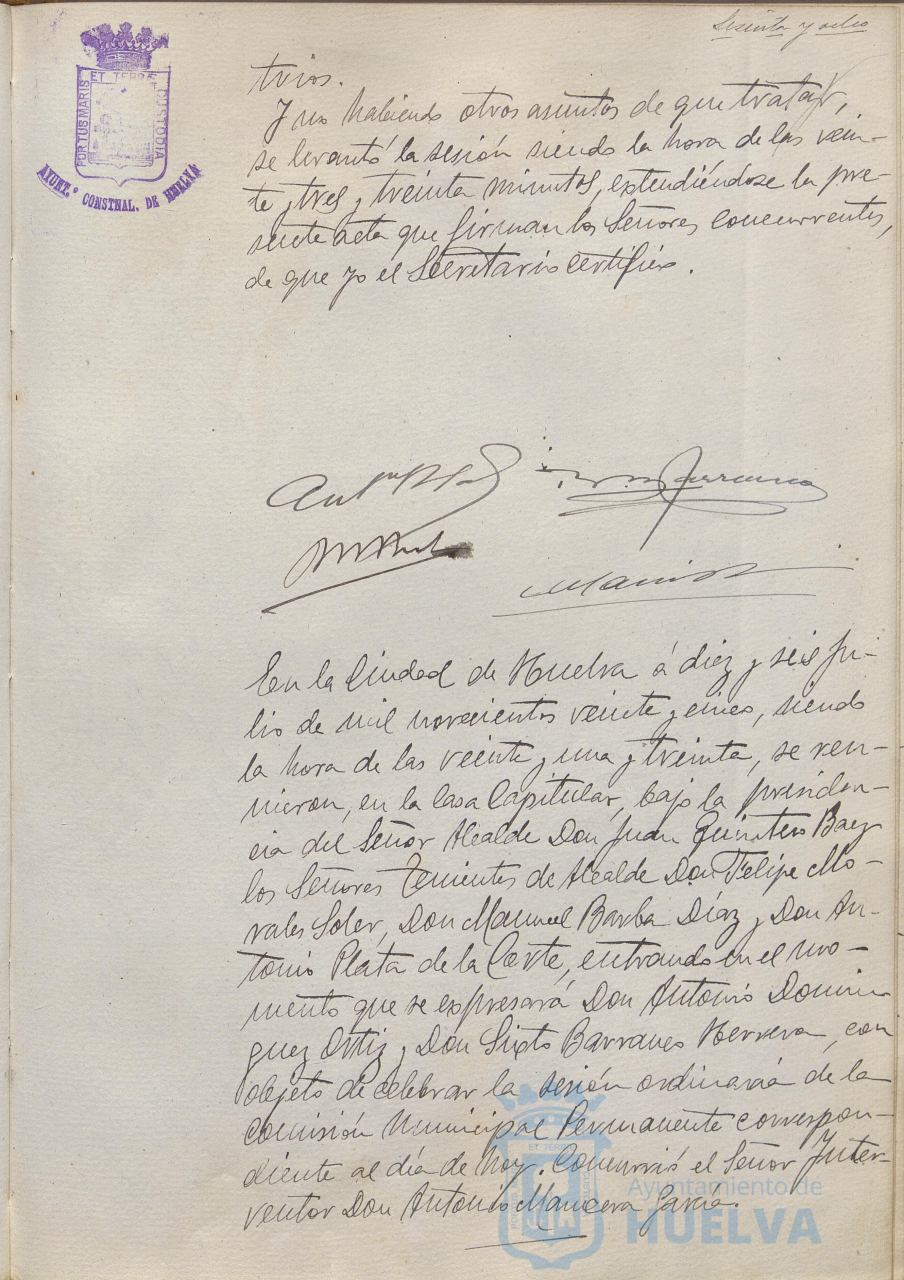 Sesenta y ocho
PORTUS MARIS ET TERRAE CUSTODIA
AYUNT.º CONSTNAL. DE HUELVA
trios.
Y no habiendo otros asuntos de que tratar,
se levantó la sesión siendo la hora de las vein-
te y tres y treinta minutos, extendiéndose la pre-
sente acta que firman los Señores concurrentes,
de que yo el Secretario certifico.
En la Ciudad de Huelva á diez y seis Ju-
lio de mil novecientos veinte y cinco, siendo
la hora de las veinte y una y treinta, se reu-
nieron, en la Casa Capitular, bajo la presiden-
cia del Señor Alcalde Don Juan Quintero Baez
los Señores Tenientes de Alcalde Don Felipe Mo-
rales Soler, Don Manuel Barba Díaz y Don An-
tonio Plata de la Corte, entrando en el mo-
mento que se expresará Don Antonio Domin-
guez Ortiz y Don Sixto Barranco Herrera, con
objeto de celebrar la sesión ordinaria de la
Comisión Municipal Permanente correspon-
diente al día de hoy. Concurrió el Señor Inter-
ventor Don Antonio Mancera García.
Ayuntamiento de
HUELVA